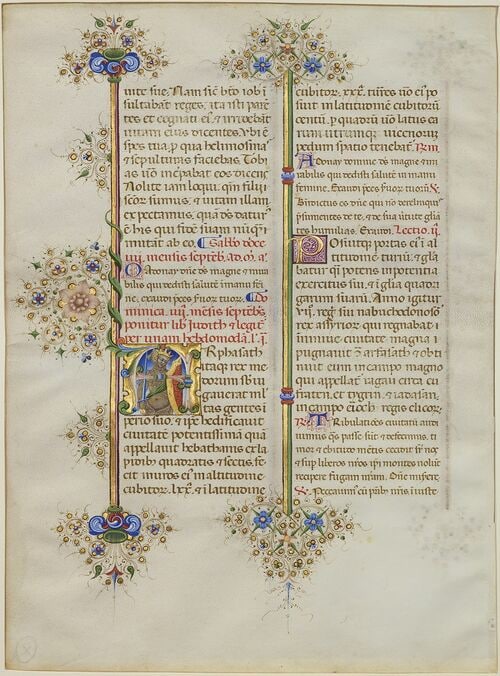 uite sue. Nam sic bto iob i
sultabāt reges, ita isti parē
tes et cognati eī, & irridebāt
uitam eius dicentes. Ubi ē
spes tua, p qua helimosinā
& sepulturas faciebas. Tobi
as uō increpabat eos dicens
Nolite itam loqui, qm filii
scōr sumus, & uitam illam
expectamus, quā ds daturꝰ
ē his qui fidē suam nūquā
mutāt ab eo.
mensis septēb
Adonay dne ds magne & mira
bilis qui dedisti salutē ī manu femi
ne, exaudi pces suor tuor. Do
minica mēsis septēbs
ponitur lib Judith & legit
per unam hebdomodā. l. i.
Arphasath
itaq rex me
dorum sb iu
gauerat ml
tas gentes i
perio suo, & ipe hedificauit
ciuitatē potentissimā quā
appellauit hebathanis ex la
pidib quadratis & sectis, fe
cit muros eī in altitudine
cubitor lxx & i latitudine
cubitor. xxx. turres uō eī po
suit in latitudinē cubitorū
centū. p quadrū uō latus ea
rum utrumque uicenorum
pedum spatio tenebat. Rm
Adonay domine ds magne & mi
rabilis qui dedisti salutē in manu
femine. Exaudi pces suor tuor. V.
Bndictus es dne qui nō derelinqis
psumentes de te, & de sua uirtute glia
tes humilias. Exaudi. Lectio. ii.
Posuitque portas eī i al
titudinē turriū, & gla
batur qi potens in potentia
exercitus sui, & i glia quadri
garum suarū. Anno igitur
regi sui nabuchodonosor
rex assyrior qui regnabat i
niniue ciuitate magna i
pugnauit arfasath & obti
nuit eum in campo magno
qui appellat ragau circa eu
fraten, et tygrin, & iadasan,
in campo erioch regis elicor.
R. Tribulationes ciuitatū audi
uimus qs passe sūt & defecimus, ti
mor & hebitudo mētis cecidit sr nos
& sup liberos nros ipi montes nolūt
recipere fugam nram. Dne miserere.
V. Peccauim cū prib nris iniuste